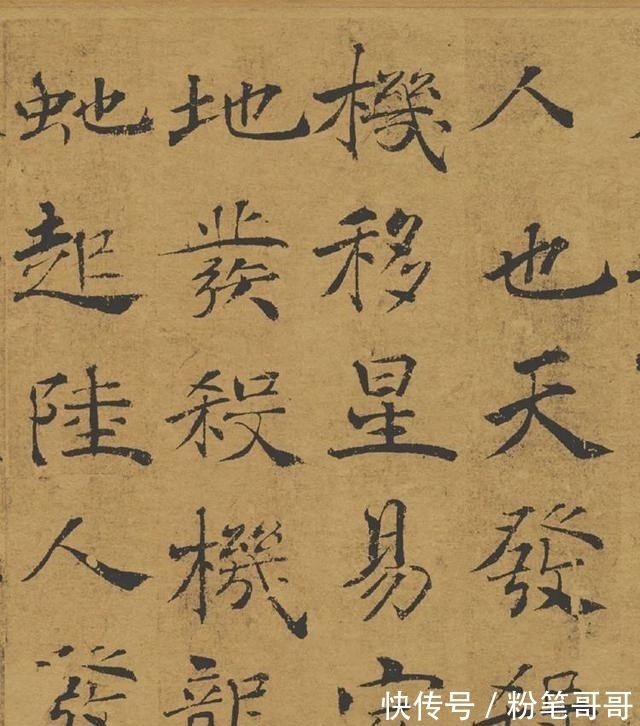 人也天發殺
機移星易
地發殺機
虵起陸人發
快传号 / 粉笔哥哥